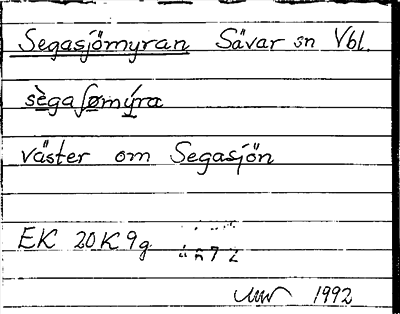 Segasjömyran Sävar sn Vbl.
sègaʃømýra
väster om Segasjön
EK 20K9g
1992